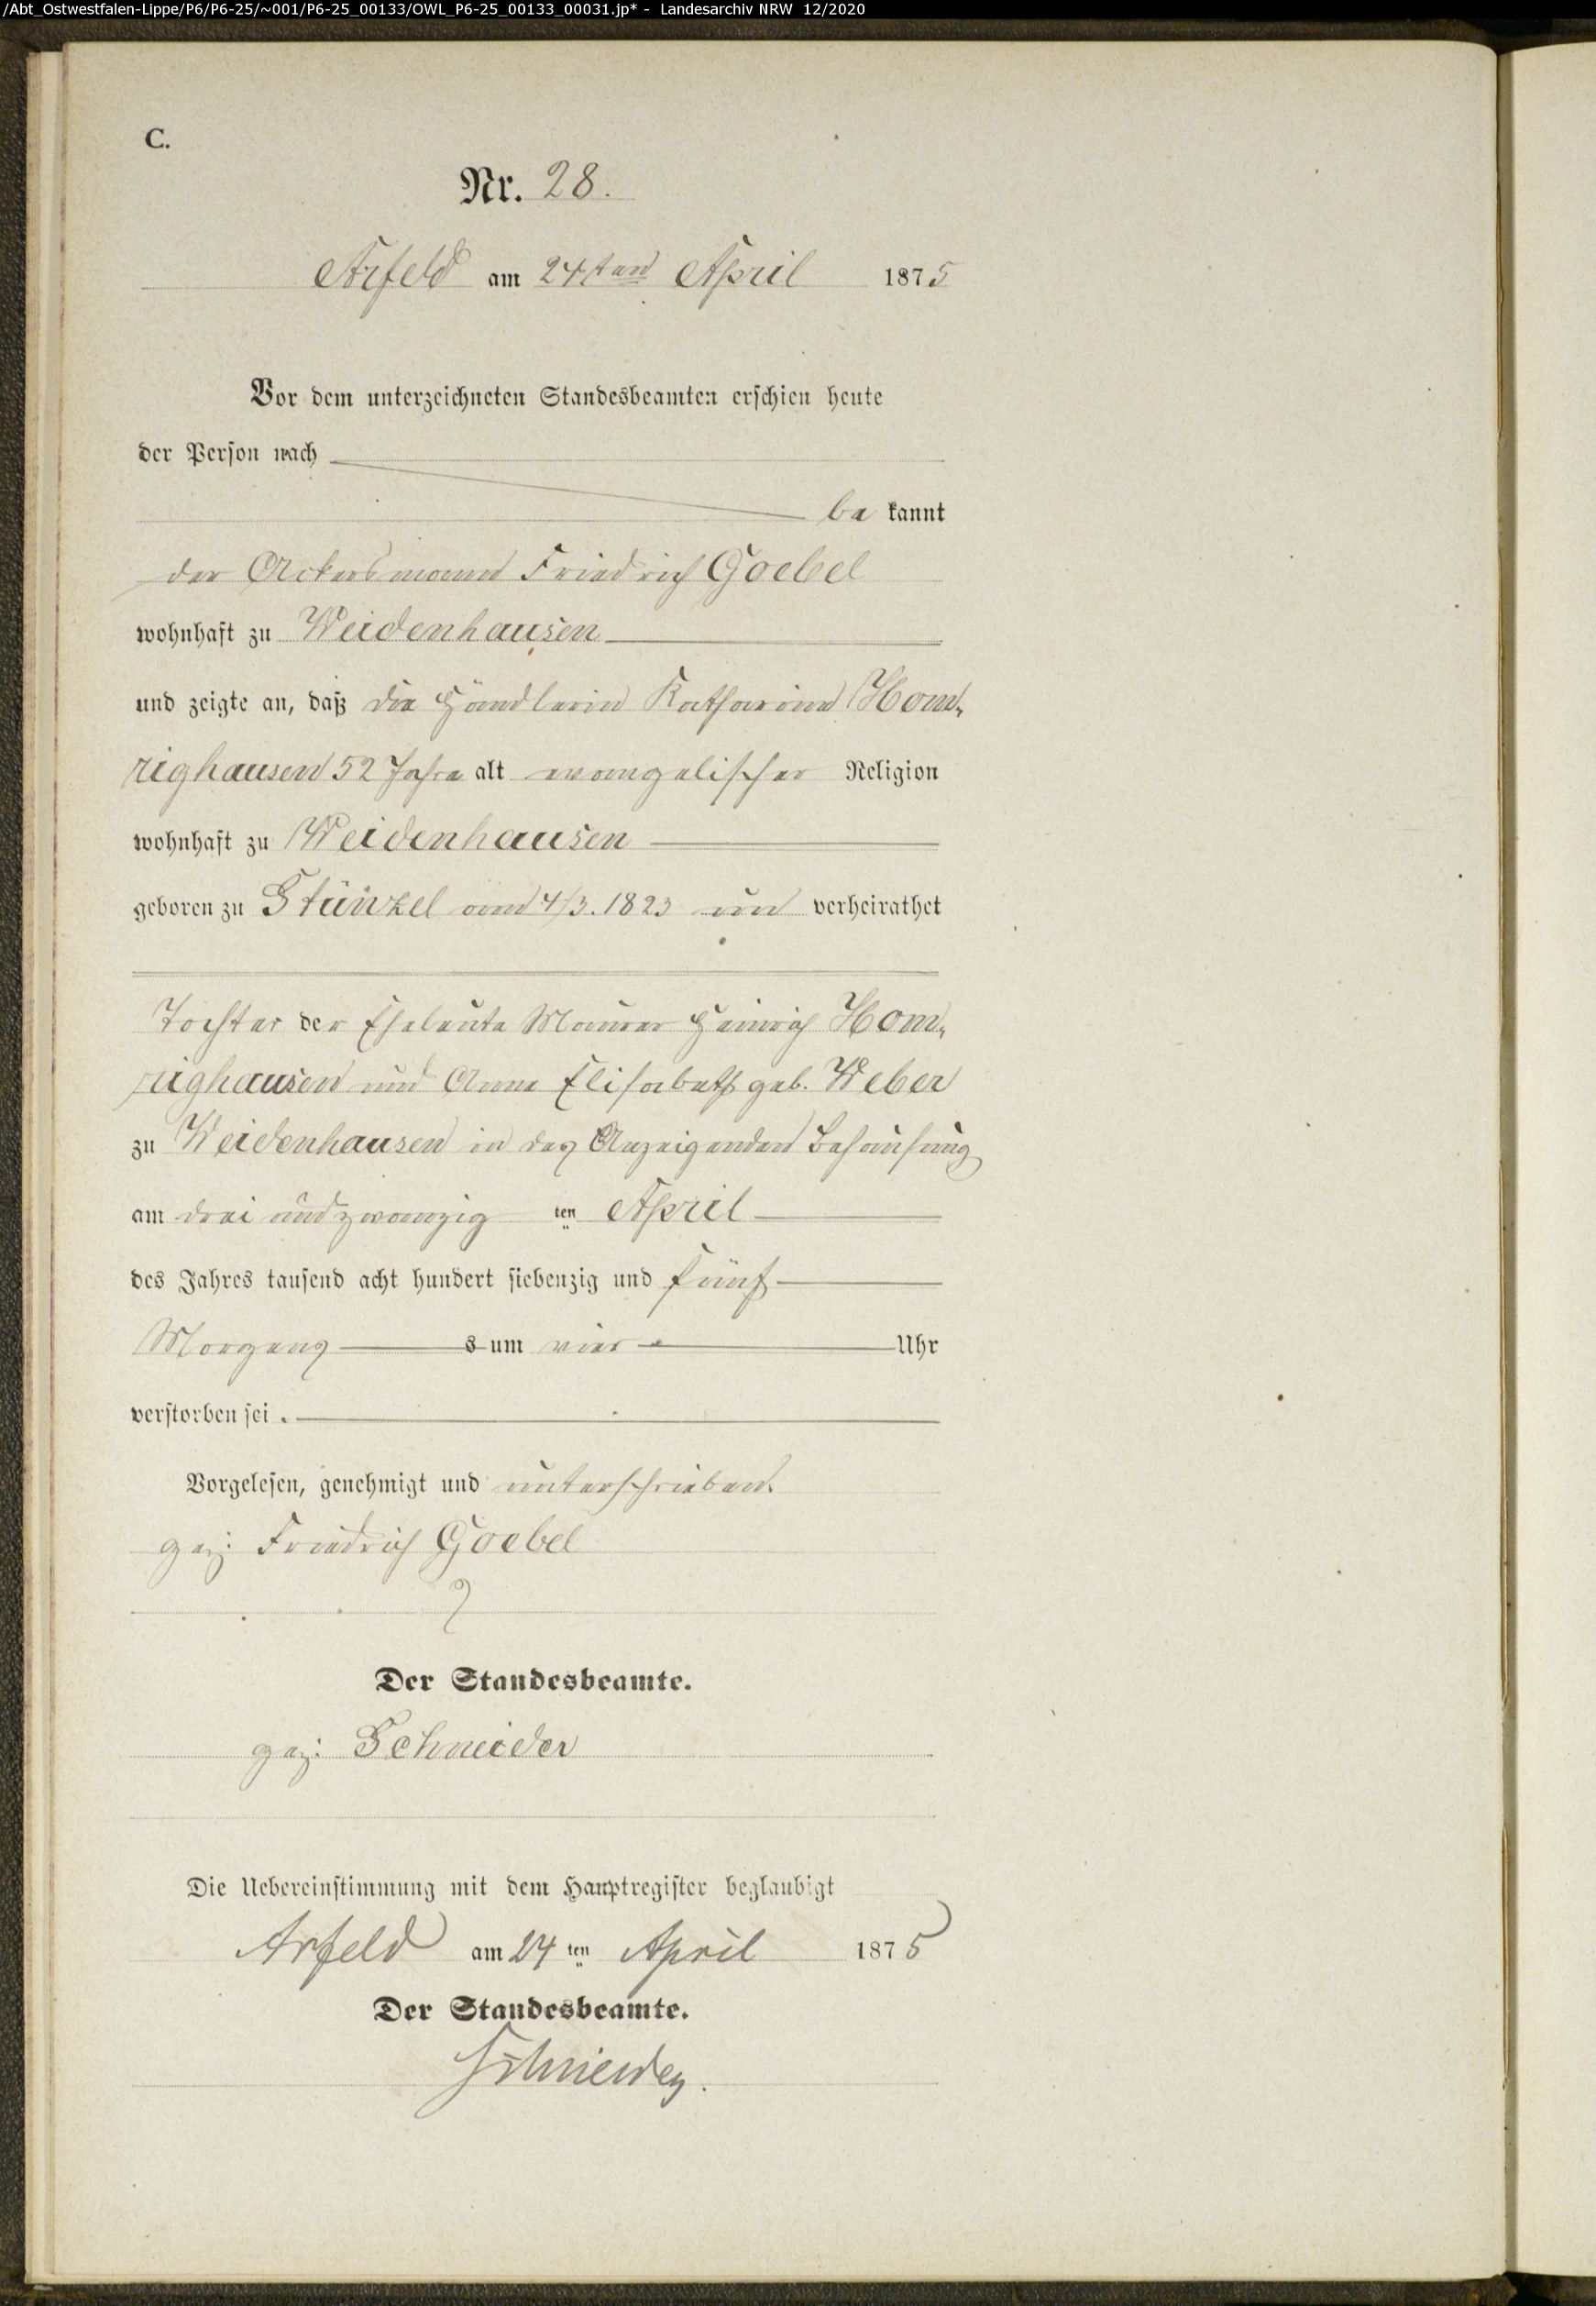 /Abt_Ostwestfalen-Lippe/P6/P6-25/~001/P6-25_00133/OWL_P6-25_00133_00031.jp* - Landesarchiv NRW 12/2020
C.
Nr. 28.
Arfeld am 24ten April 1875
Vor dem unterzeichneten Standesbeamten erschien heute
der Person nach
be kannt
der Ackersmann Friedrich Goebel
wohnhaft zu Weidenhausen
und zeigte an, daß die Händlerin Katharina Hom-
righausen 52 Jahre alt evangelischer Religion
wohnhaft zu Weidenhausen
geboren zu Stünzel am 4/3. 1823 un verheirathet
Tochter der Eheleute Maurer Heinrich Hom-
righausen und Anna Elisabeth geb. Weber
zu Weidenhausen in des Anzeigenden Behausung
am drei und zwanzig ten April
des Jahres tausend acht hundert siebenzig und fünf
Morgens s um vier Uhr
verstorben sei.
Vorgelesen, genehmigt und unterschrieben.
gez: Friedrich Goebel
Der Standesbeamte.
gez: Schneider
Die Uebereinstimmung mit dem Hauptregister beglaubigt
Arfeld am 24 ten April 1875
Der Standesbeamte.
Schneider.